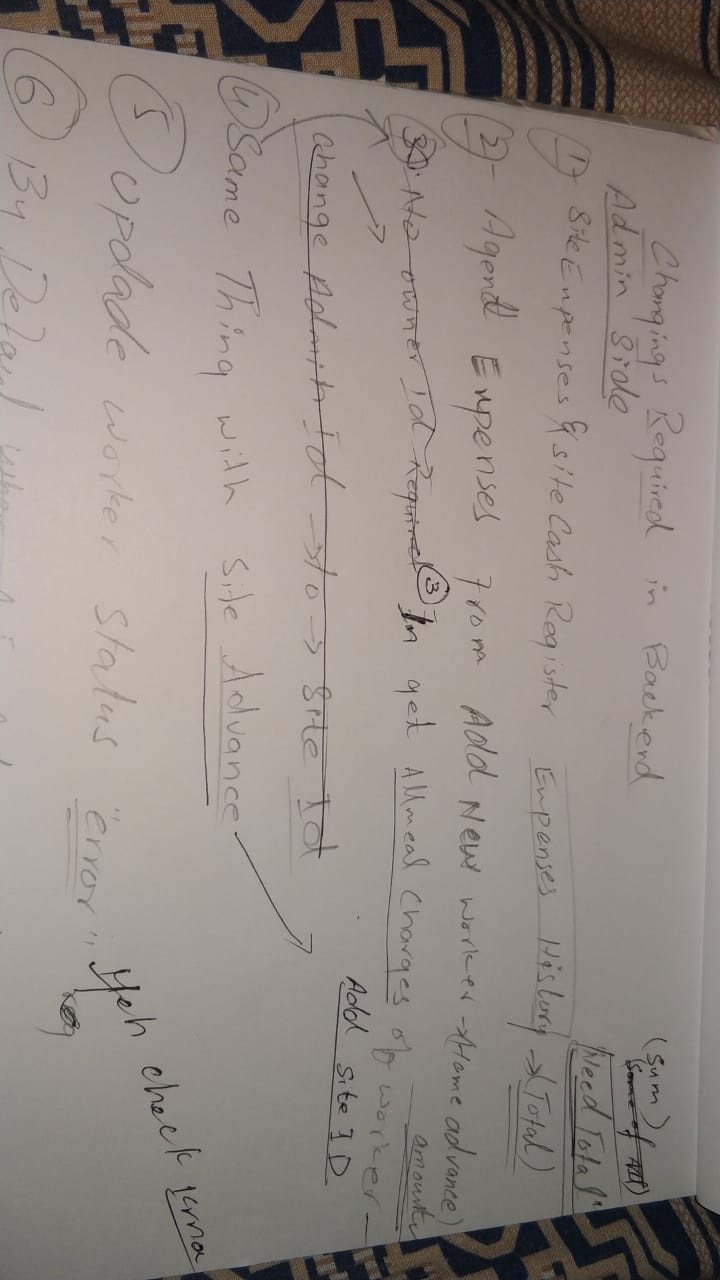 Changings Required in Backend
Admin Side
(Sum)
(Some of All)
"Need Total"
1)- Site Expenses & site Cash Register Expenses History → (Total)
2)- Agent Expenses From Add New worker → (Home advance) amount
3). No owner Id Required
③ In get All meal Charges of worker —
Add Site ID
Change Admin Id → to → Site Id
④ Same Thing with Site Advance
⑤ Updade worker Status "error"
Yeh check krna
⑥ By